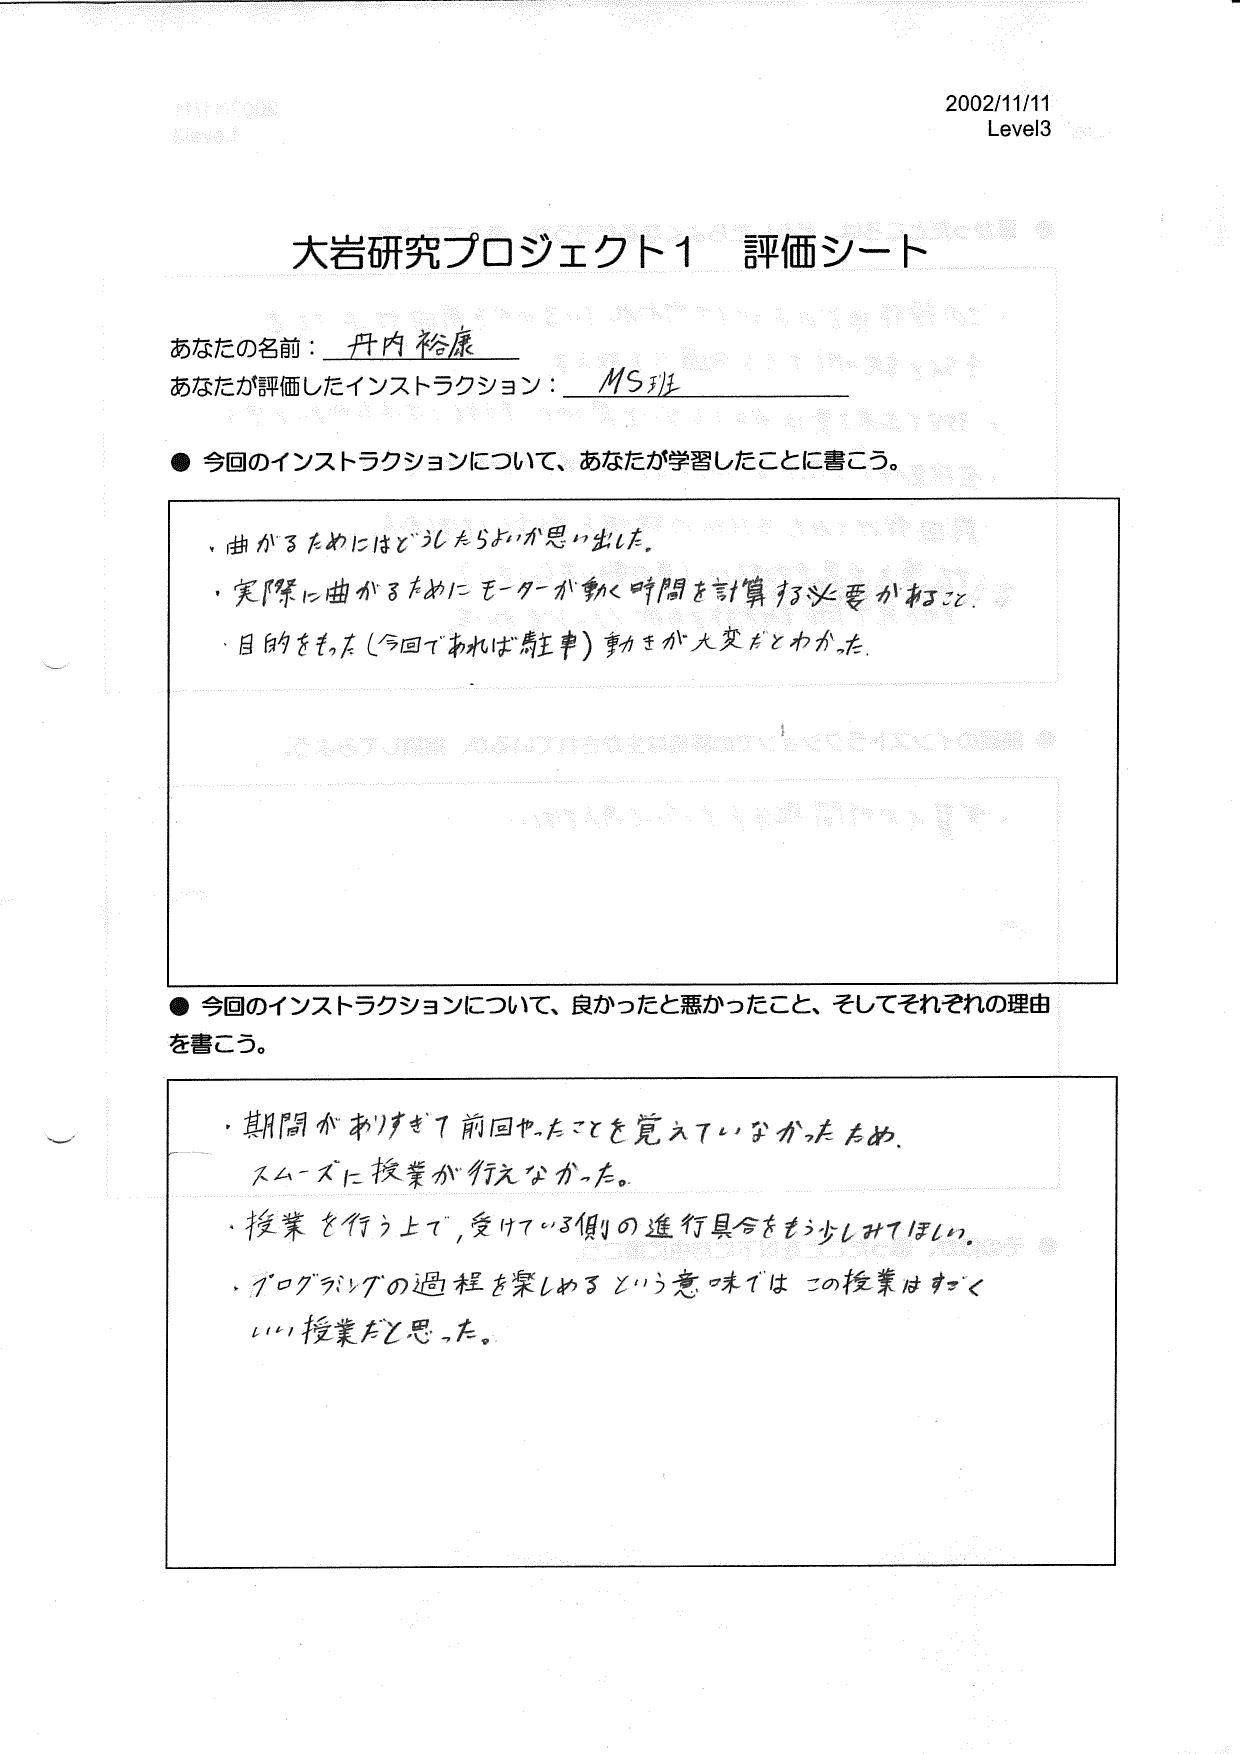 2002/11/11
Level3
大岩研究プロジェクト1　評価シート
あなたの名前：丹内 裕康
あなたが評価したインストラクション：MS班
● 今回のインストラクションについて、あなたが学習したことに書こう。
・曲がるためにはどうしたらよいか思い出した。
・実際に曲がるためにモーターが動く時間を計算する必要があること.
・目的をもった(今回であれば駐車)動きが大変だとわかった.
● 今回のインストラクションについて、良かったと悪かったこと、そしてそれぞれの理由
を書こう。
・期間がありすぎて前回やったことを覚えていなかったため、
スムーズに授業が行えなかった。
・授業を行う上で,受けている側の進行具合をもう少しみてほしい。
・プログラミングの過程を楽しめるという意味ではこの授業はすごく
いい授業だと思った。